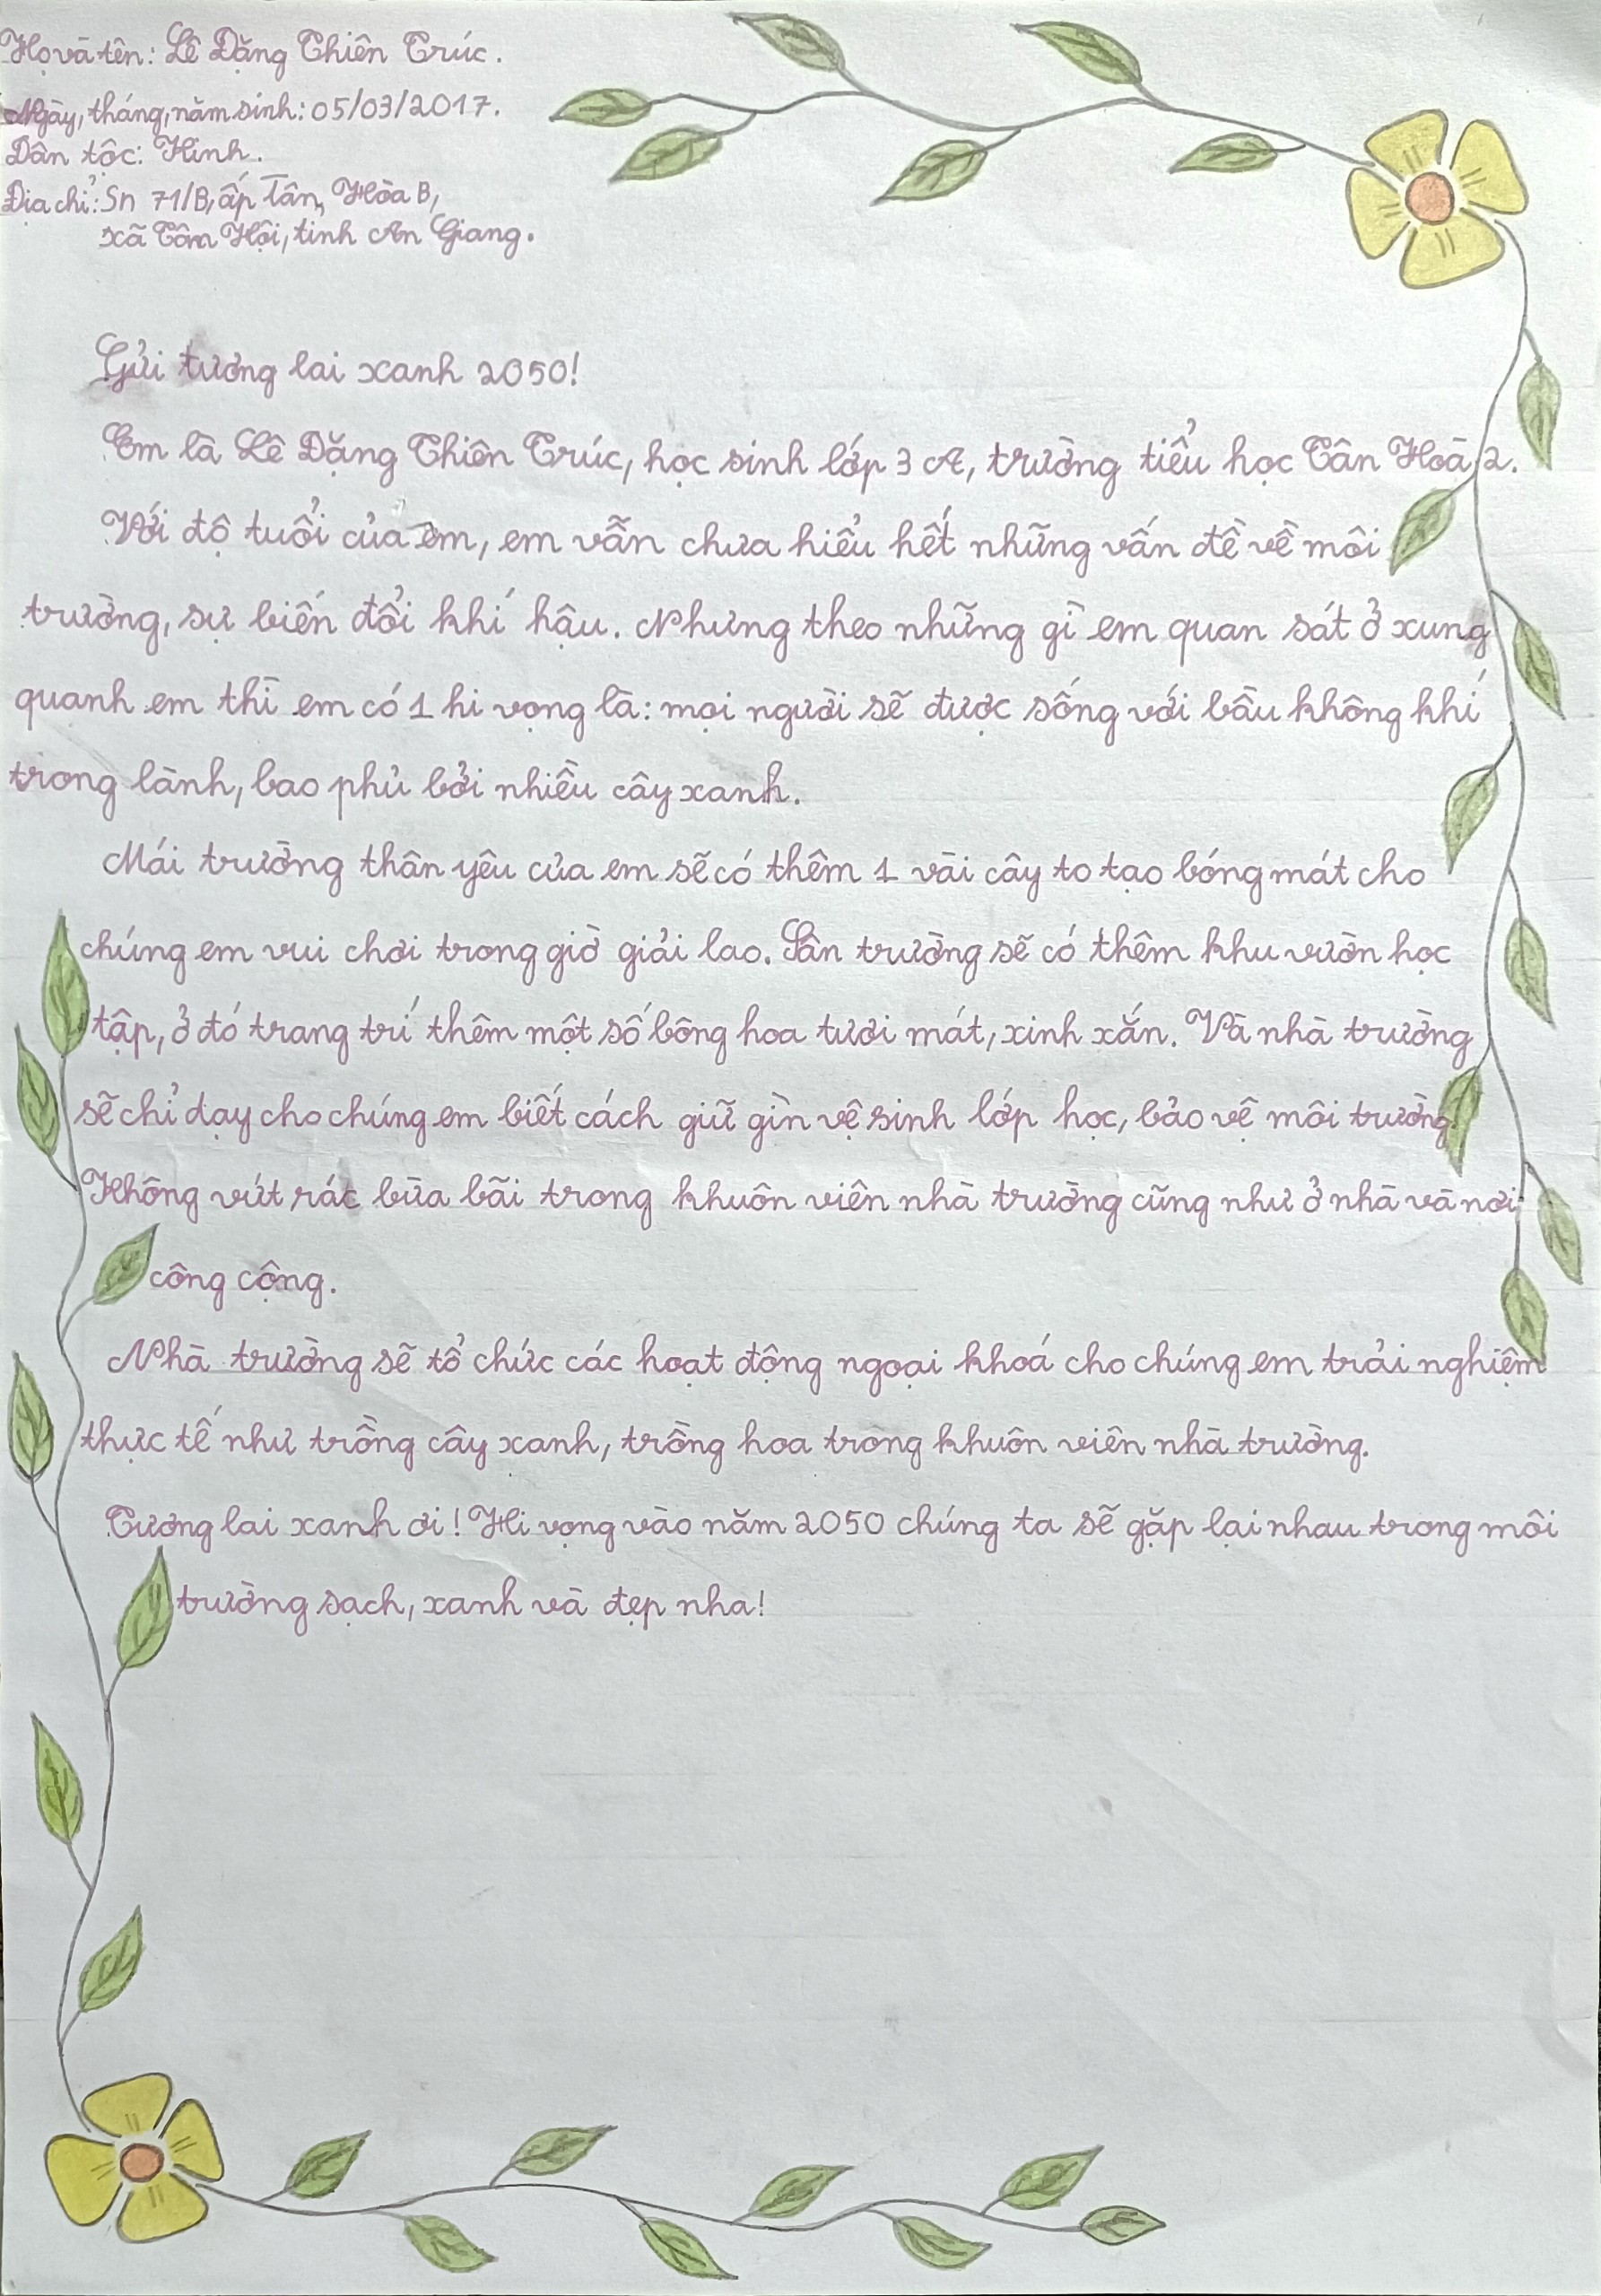 Họ và tên: Lê Đặng Thiên Trúc.
Ngày, tháng, năm sinh: 05/03/2017.
Dân tộc: Kinh.
Địa chỉ: Sn 71/B, ấp Tân, Hòa B,
xã Tân Hội, tỉnh An Giang.
Gửi tương lai xanh 2050!
Em là Lê Đặng Thiên Trúc, học sinh lớp 3 A, trường tiểu học Tân Hoà 2.
Với độ tuổi của em, em vẫn chưa hiểu hết những vấn đề về môi
trường, sự biến đổi khí hậu. Nhưng theo những gì em quan sát ở xung
quanh em thì em có 1 hi vọng là: mọi người sẽ được sống với bầu không khí
trong lành, bao phủ bởi nhiều cây xanh.
Mái trường thân yêu của em sẽ có thêm 1 vài cây to tạo bóng mát cho
chúng em vui chơi trong giờ giải lao. Sân trường sẽ có thêm khu vườn học
tập, ở đó trang trí thêm một số bông hoa tươi mát, xinh xắn. Và nhà trường
sẽ chỉ dạy cho chúng em biết cách giữ gìn vệ sinh lớp học, bảo vệ môi trường.
Không vứt rác bừa bãi trong khuôn viên nhà trường cũng như ở nhà và nơi
công cộng.
Nhà trường sẽ tổ chức các hoạt động ngoại khoá cho chúng em trải nghiệm
thực tế như trồng cây xanh, trồng hoa trong khuôn viên nhà trường.
Tương lai xanh ơi! Hi vọng vào năm 2050 chúng ta sẽ gặp lại nhau trong môi
trường sạch, xanh và đẹp nha!